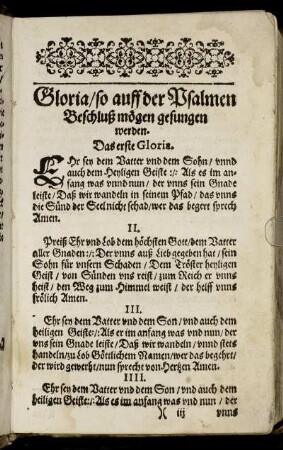 Gloria/ so auff der Psalmen
Beschluß mögen gesungen
werden.
Das erste Gloria.
EHr sey dem Vatter vnd dem Sohn/ vnnd
auch dem Heyligen Geiste :/: Als es im an-
fang was vnnd nun/ der vnns sein Gnade
leiste/ Daß wir wandeln in seinem Pfad/ das vnns
die Sünd der Seel nicht schad/ wer das begert sprech
Amen.
II.
Preiß Ehr vnd Lob dem höchsten Gott/ dem Vatter
aller Gnaden :/: Der vnns auß Lieb gegeben hat/ sein
Sohn für vnsern Schaden/ Dem Tröster heyligen
Geist/ von Sünden vns reist/ zum Reich er vnns
heist/ den Weg zum Himmel weist/ der helff vnns
frölich Amen.
III.
Ehr sey dem Vatter vnd dem Son/ vnd auch dem
heiligen Geiste :/: Als er im anfang was vnd nun/ der
vns sein Gnade leiste/ Daß wir wandeln/ vnnd stets
handeln/ zu Lob Göttlichem Namen/ wer das begehrt/
der wird gewehrt/ nun sprecht von Hertzen Amen.
IIII.
Ehr sey dem Vatter vnd dem Son/ vnd auch dem
heiligen Geiste :/: Als es im anfang was vnd nun/ der
iij vnns